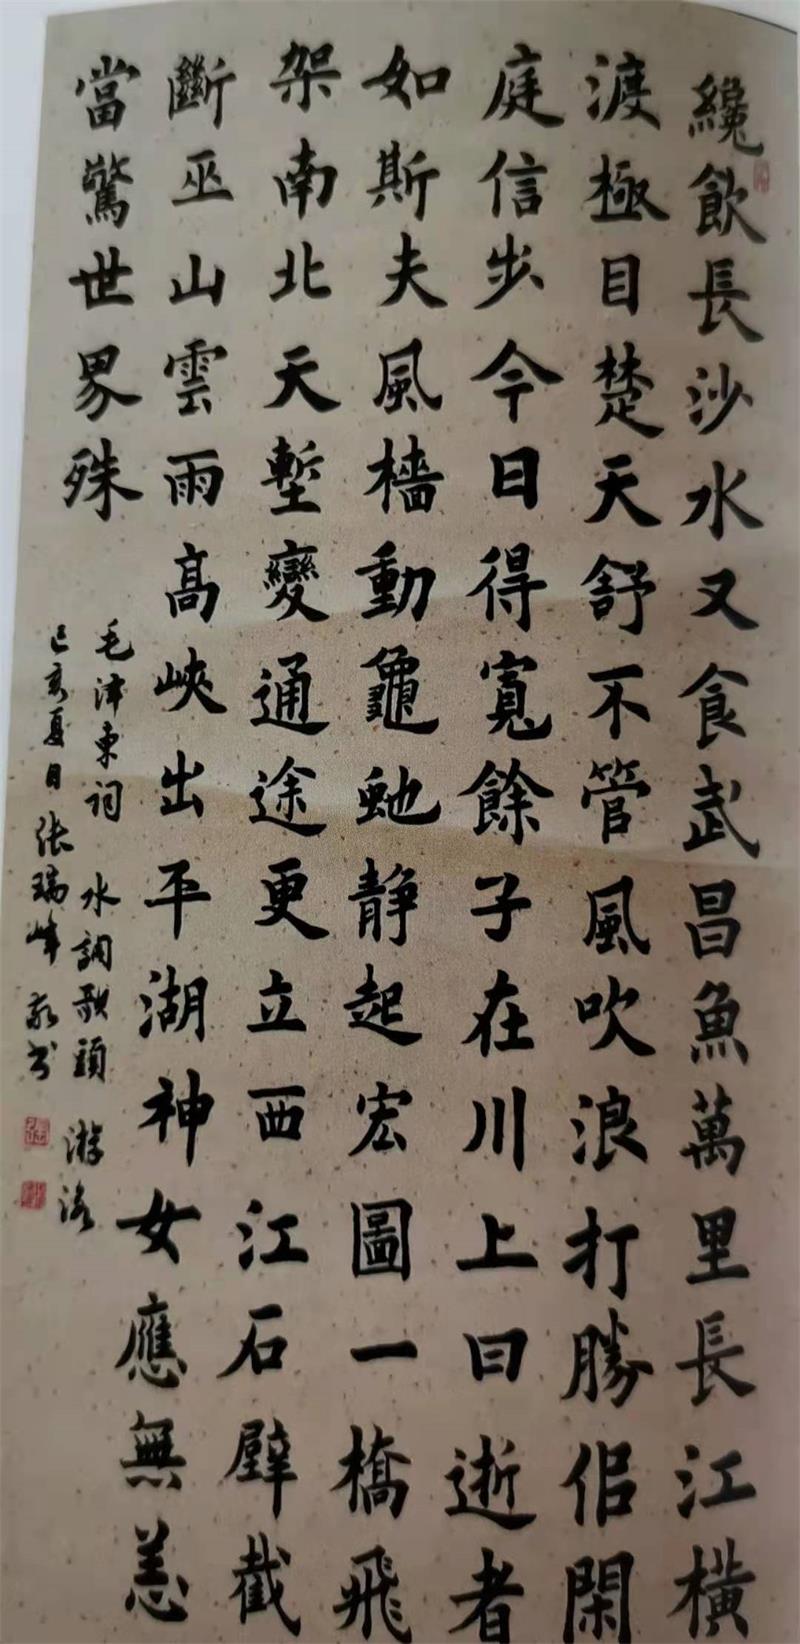 纔飲長沙水又食武昌魚萬里長江橫
渡極目楚天舒不管風吹浪打勝佀閑
庭信步今日得寬餘子在川上曰逝者
如斯夫風檣動龜虵静起宏圖一橋飛
架南北天塹變通途更立西江石壁截
斷巫山雲雨高峽出平湖神女應無恙
當驚世界殊
毛泽東词 水調歌頭 游泳
己亥夏日張瑞峰敬书